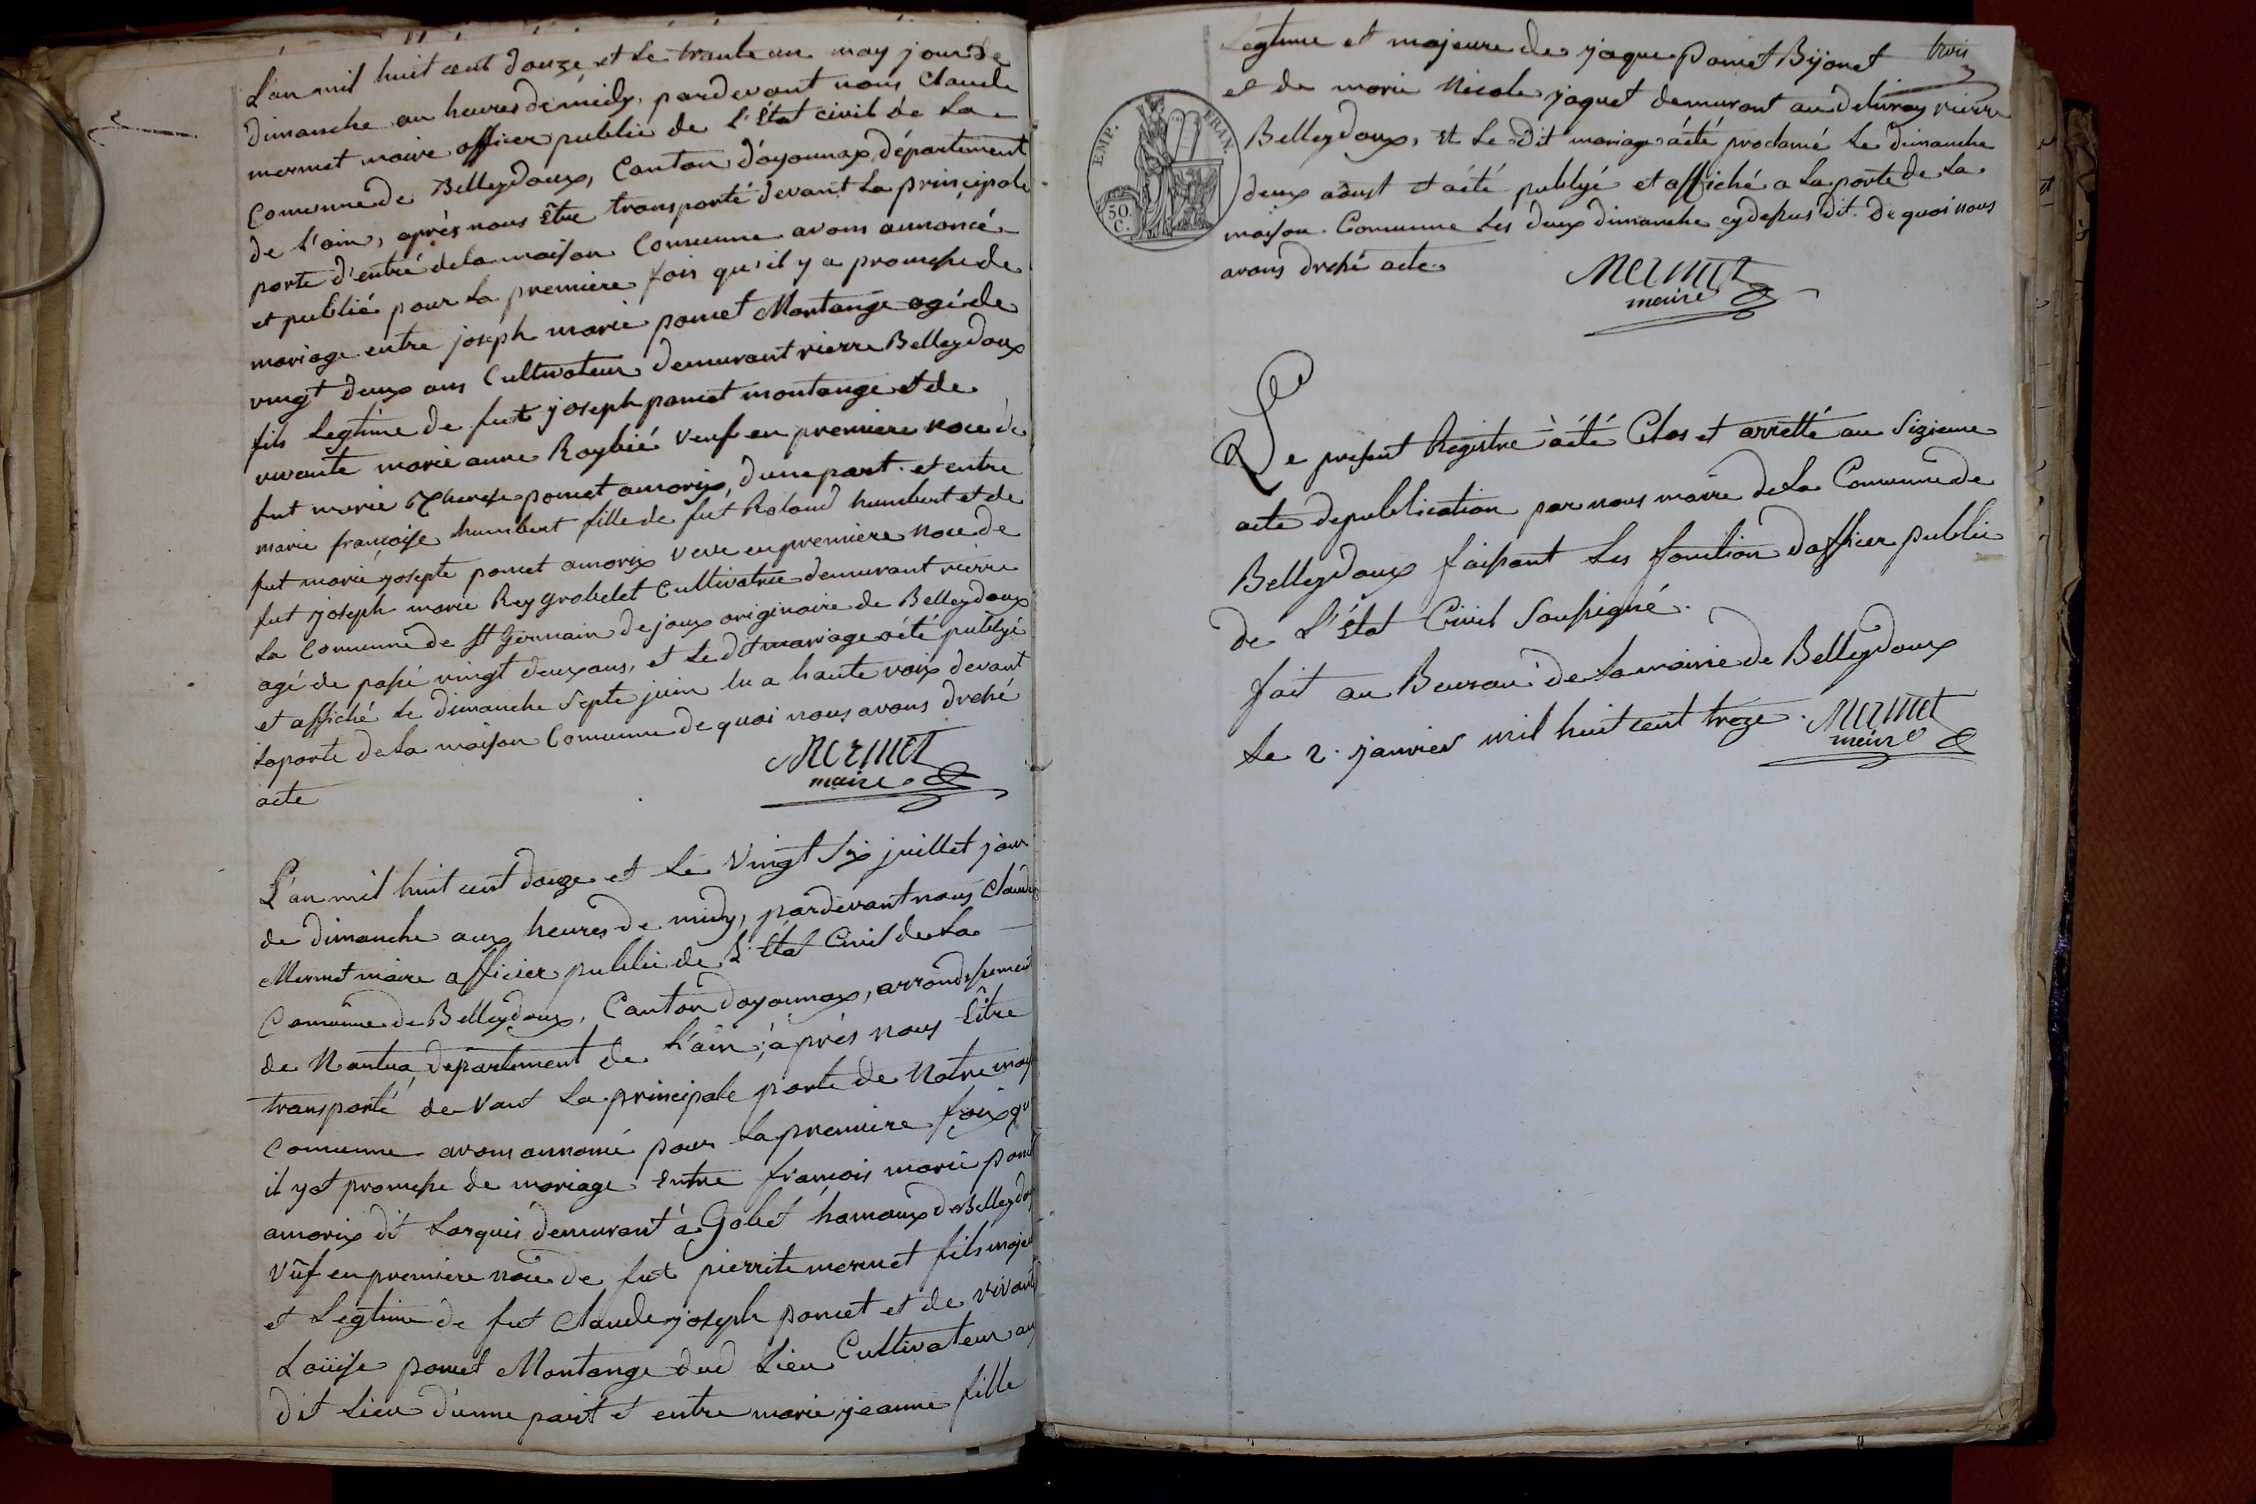 L'an mil huit cent douze et le trante un may jour de
dimanche au heures de midy, pardevant nous Claude
mermet maire officier public de L'Etat civil de La
Commune de Belleydoux, Canton d'oyonnax, département
de L'ain, après nous Être transporté devant La principale
porte d'entré de la maison Commune avons annoncé
et publié pour La premiere fois qu'il y a promesse de
mariage entre joseph marie poncet Montange agé de
vingt deux ans Cultivateur demurant rierre Belleydoux
fils Legtime de fut joseph poncet montange et de
vivante marie anne Raybié veuf en premiere noce de
fut marie Therese poncet amorix, d'une part. et entre
marie francoise humbert fille de fut Roland humbert et de
fut marie josepte poncet amorix veve en premiere noce de
fut joseph marie Rey grobelet Cultivatrice demurant rierre
La Commune de St Germain de joux originaire de Belleydoux
agé de passé vingt deux ans, et Le dit mariage a été publyé
et affiché Le dimanche septe juin lu a haute voix devant
La porte de La maison Commune de quoi nous avons dreché
acte
Mermet
maire
L'an mil huit cent douze et Le vingt six juillet jour
de dimanche aux heures de midy, pardevant nous Claude
Mermet maire officier public de L'Etat Civil de La
Commune de Belleydoux, Canton doyonnax, arrondissement
de Nantua, departement de L'ain, après nous Être
transporté devant La principale porte de Notre mais
Commune avons annoncé pour La premiere foix qu
il y at promesse de mariage Entre francois marie ponc
amorix dit Lorquis demurant à Gobet hamaux de Belleydo
Vüf en premiere noce de fut pierrite mermet fils maje
et Legtime de fut Claude joseph poncet et de vivant
Loüise poncet Montange dud Lieu Cultivateur au
dit Lieu d'unne part et entre marie jeanne fille
Legtime et majeure de jaque poncet Bijonet
trois
et de marie Nicole jaquet demurant au delivray rierre
EMP. FRAN.
50 C.
Belleydoux, et Le dit mariage a été proclamé Le dimanche
deux aoust et a été publyé et affiché a La porte de La
maison Commune Les deux dimanche cy depus dit. De quoi nous
avons dreché acte.
Mermet
maire
Le present Registre à été Clos et arretté au Sizieme
acte de publication par nous maire de La Commune de
Belleydoux faisant Les fonction d'officier public
de L'état Civil Soussigné.
fait au Bureau de La mairie de Belleydoux
Le 2. janvier mil huit cent treze.
Mermet
maire